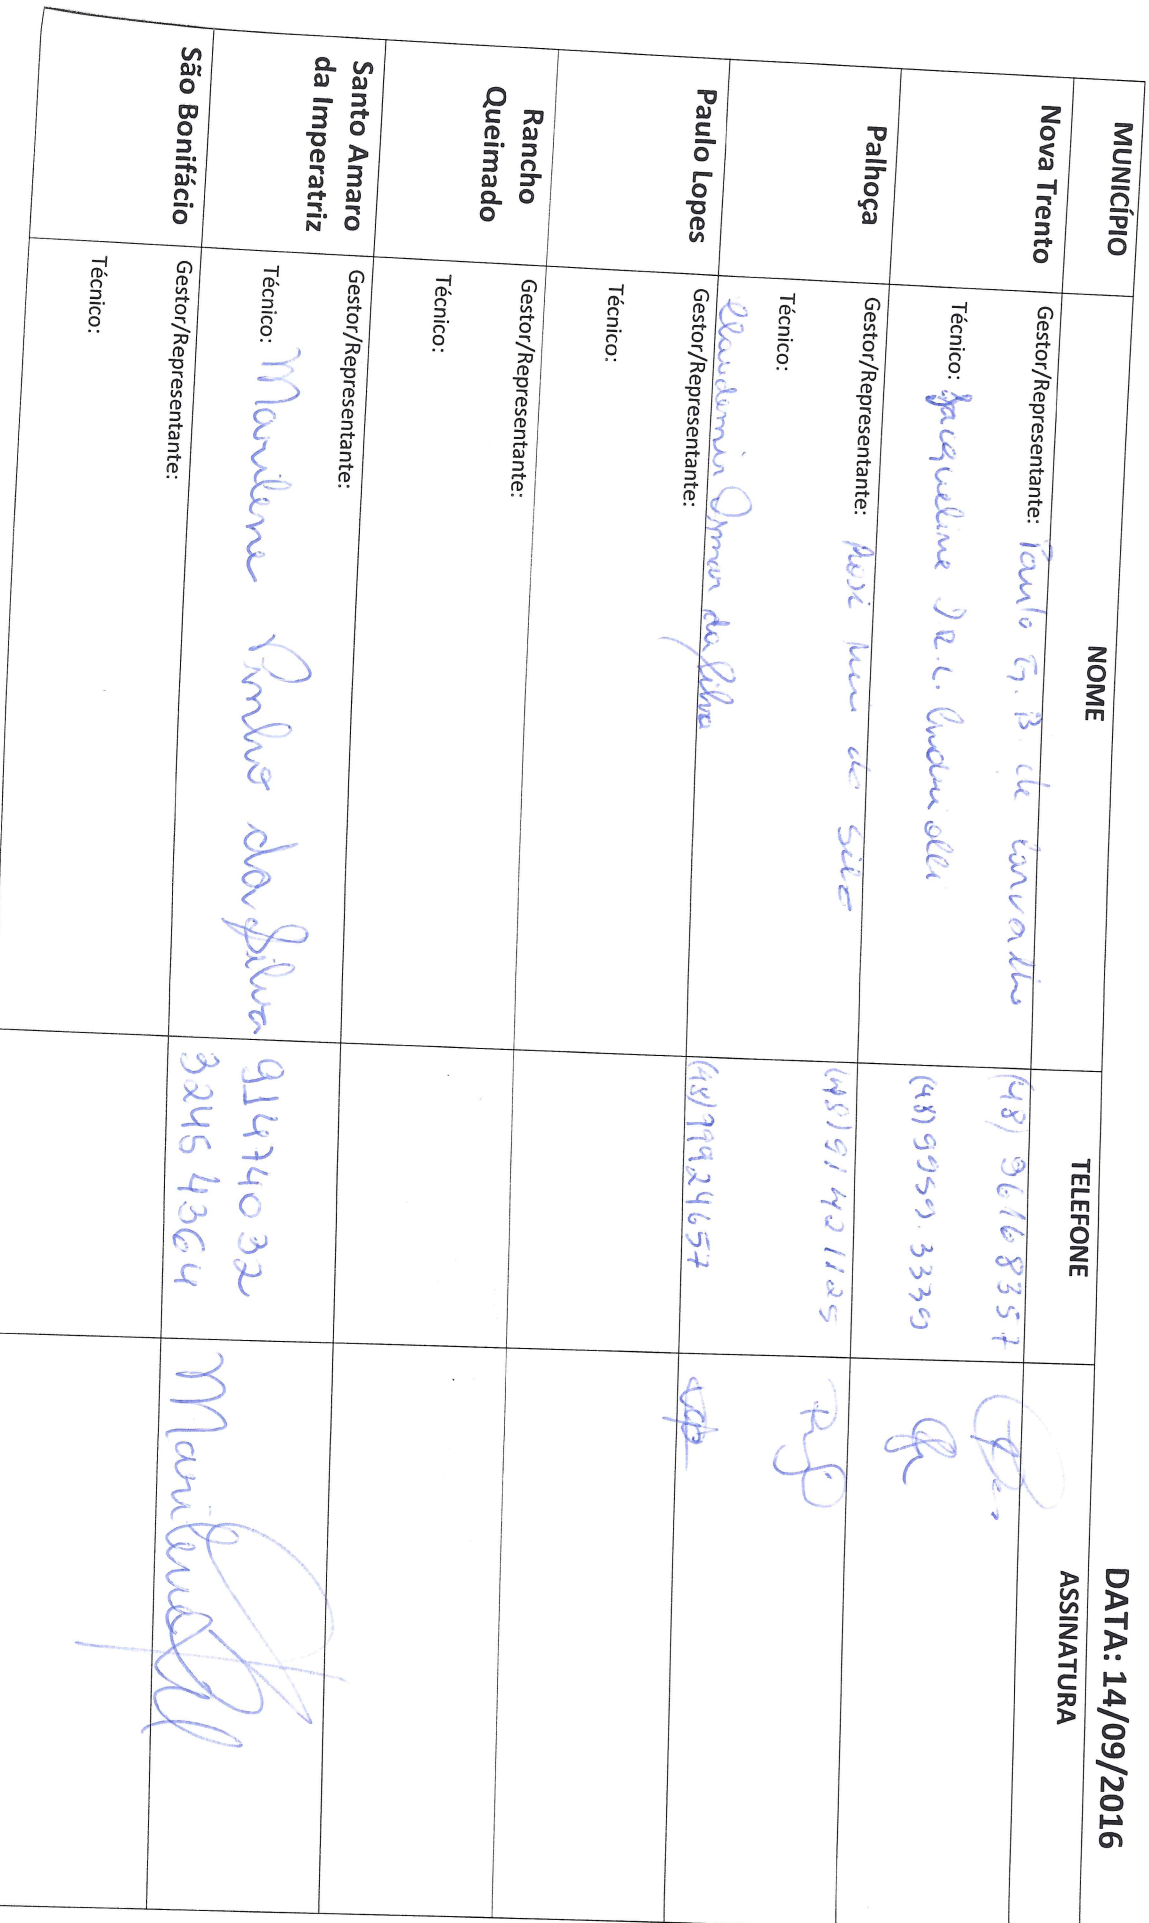 DATA: 14/09/2016
MUNICÍPIO NOME TELEFONE ASSINATURA
Nova Trento Gestor/Representante: Paulo G. B. de Carvalho (48) 96168357
Técnico: Jacqueline (48) 9959.3339
Palhoça Gestor/Representante: (48) 91421125
Técnico:
Claudemir Osmar da Silva
Paulo Lopes Gestor/Representante: (48) 99924657
Técnico:
Rancho
Queimado
Gestor/Representante:
Técnico:
Santo Amaro
da Imperatriz
Gestor/Representante:
Técnico: Marilene Pinho da Silva 91474032
3245 4364
Marilene
São Bonifácio Gestor/Representante:
Técnico: